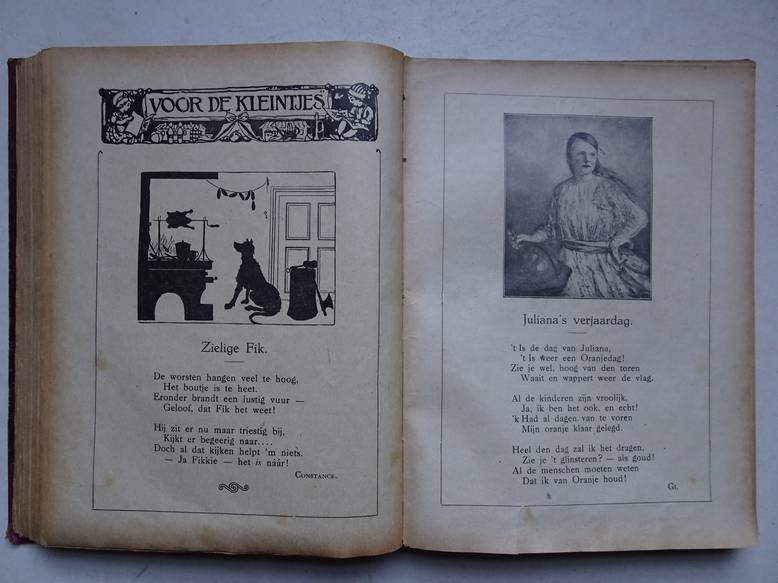 VOOR DE KLEINTJES
Zielige Fik.
De worsten hangen veel te hoog,
Het boutje is te heet.
Eronder brandt een lustig vuur —
Geloof, dat Fik het weet!
Hij zit er nu maar triestig bij,
Kijkt er begeerig naar....
Doch al dat kijken helpt 'm niets.
— Ja Fikkie — het is náár!
CONSTANCE.
Juliana's verjaardag.
't Is de dag van Juliana,
't Is weer een Oranjedag!
Zie je wel, hoog van den toren
Waait en wappert weer de vlag.
Al de kinderen zijn vroolijk,
Ja, ik ben het ook, en echt!
'k Had al dagen van te voren
Mijn oranje klaar gelegd.
Heel den dag zal ik het dragen,
Zie je 't glinsteren? — als goud!
Al de menschen moeten weten
Dat ik van Oranje houd!
Gt.